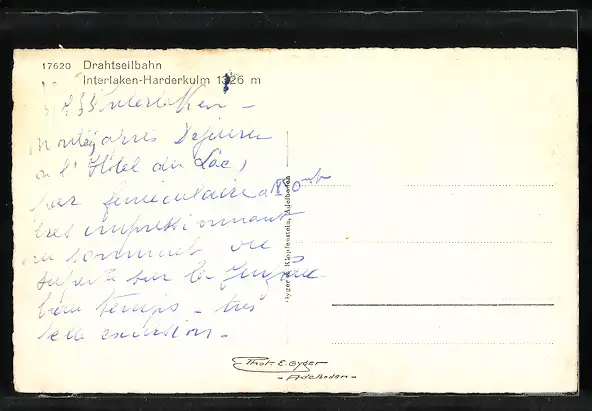 17620 Drahtseilbahn
Interlaken-Harderkulm 1326 m
Interlaken -
après Dejeuner
a l'Hôtel du Lac,
par funiculaire a
tres impressionnant
au sommet vue
superbe sur la Jungfrau
beau temps - très
belle excursion -
Gyger & Klopfenstein, Adelboden
Phot. E. Gyger
- Adelboden -